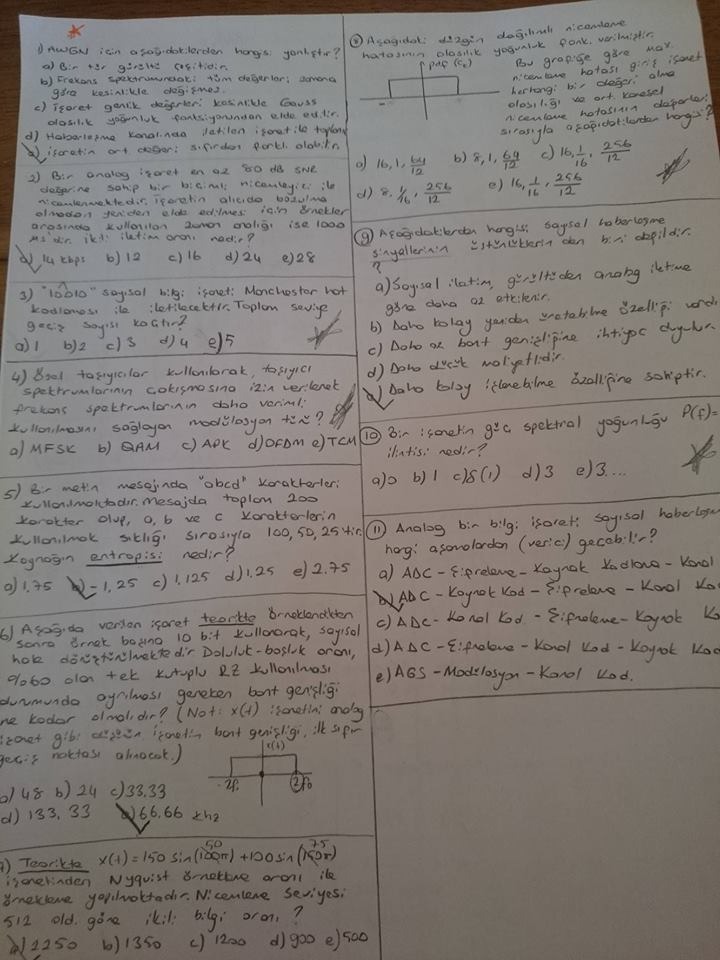 1) AWGN için aşağıdakilerden hangisi yanlıştır?
a) Bir tür gürültü çeşitidir.
b) Frekans spektrumundaki tüm değerleri zamana
göre kesinlikle değişmez.
c) işaret genlik değerleri kesinlikle Gauss
olasılık yoğunluk fonksiyonundan elde edilir.
d) Haberleşme kanalında iletilen işaret ile toplanır
e) işaretin ort. değeri sıfırdan farklı olabilir.
2) Bir analog işaret en az 80 dB SNR
değerine sahip bir biçimli niceleyici ile
nicemlenmektedir. işaretin alıcıda bozulma
olmadan yeniden elde edilmesi için örnekler
arasında kullanılan zaman aralığı ise 1000
µs'dir. ikili iletim oranı nedir?
a) 14 kbps b) 12 c) 16 d) 24 e) 28
3) "10010" sayısal bilgi işareti Manchester hat
kodlaması ile iletilecektir. Toplam seviye
geçiş sayısı kaçtır?
a) 1 b) 2 c) 3 d) 4 e) 5
4) Özel taşıyıcılar kullanılarak, taşıyıcı
spektrumlarının çakışmasına izin verilerek
frekans spektrumlarının daha verimli
kullanılmasını sağlayan modülasyon türü?
a) MFSK b) QAM c) APK d) OFDM e) TCM
5) Bir metin mesajında "abcd" karakterleri
kullanılmaktadır. Mesajda toplam 200
karakter olup, a, b ve c karakterlerin
kullanılmak sıklığı sırasıyla 100, 50, 25 tir.
Kaynağın entropisi nedir?
a) 1,75 b) -1,25 c) 1.125 d) 1,25 e) 2.75
6) Aşağıda verilen işaret teorikte örneklendikten
sonra örnek başına 10 bit kullanarak, sayısal
hale dönüştürülmektedir. Doluluk-boşluk oranı,
%60 olan tek kutuplu RZ kullanılması
durumunda ayrılması gereken bant genişliği
ne kadar olmalıdır? (Not: x(t) işaretini analog
işaret gibi düşün işaretin bant genişliği, ilk sıfır
geçiş noktası alınacak.)
x(t)
-2f₀ 2f₀
a) 48 b) 24 c) 33,33
d) 133,33 e) 66,66 khz
50 75
7) Teorikte x(t) = 150 sin(100π) + 100 sin(150π)
işaretinden Nyquist örnekleme oranı ile
örnekleme yapılmaktadır. Nicemleme seviyesi
512 old. göre ikili bilgi oranı?
a) 2250 b) 1350 c) 1200 d) 900 e) 500
8) Aşağıdaki düzgün dağılımlı nicemleme
hatasının olasılık yoğunluk fonk. verilmiştir.
pdf (
Bu grafiğe göre max.
nicemleme hatası giriş işaret
herhangi bir değeri alma
olasılığı ve ort. karesel
nicemleme hatasının değerleri
sırasıyla aşağıdakilerden hangisi?
a) 16, 1, 64/12 b) 8, 1, 64/12 c) 16, 1/16, 256/12
d) 8, 1/16, 256/12 e) 16, 1/16, 256/12
9) Aşağıdakilerden hangisi sayısal haberleşme
sinyallerinin üstünlüklerinden biri değildir.
?
a) Sayısal iletim, gürültüden analog iletime
göre daha az etkilenir.
b) Daha kolay yeniden üretebilme özelliği vardı
c) Daha az bant genişliğine ihtiyaç duyulur.
d) Daha düşük maliyetlidir.
e) Daha kolay işlenebilme özelliğine sahiptir.
10) Bir işaretin güç spektral yoğunluğu P(f)=
ilintisi nedir?
a) 0 b) 1 c) δ(1) d) 3 e) 3...
11) Analog bir bilgi işareti sayısal haberleş
hangi aşamalardan (verici) geçebilir?
a) ADC - Şifreleme - Kaynak Kodlama - Kanal
b) ADC - Kaynak Kod - Şifreleme - Kanal Ko
c) ADC - Kanal Kod. - Şifreleme - Kaynak Ko
d) ADC - Şifreleme - Kanal Kod - Kaynak Kod
e) AGS - Modülasyon - Kanal Kod.